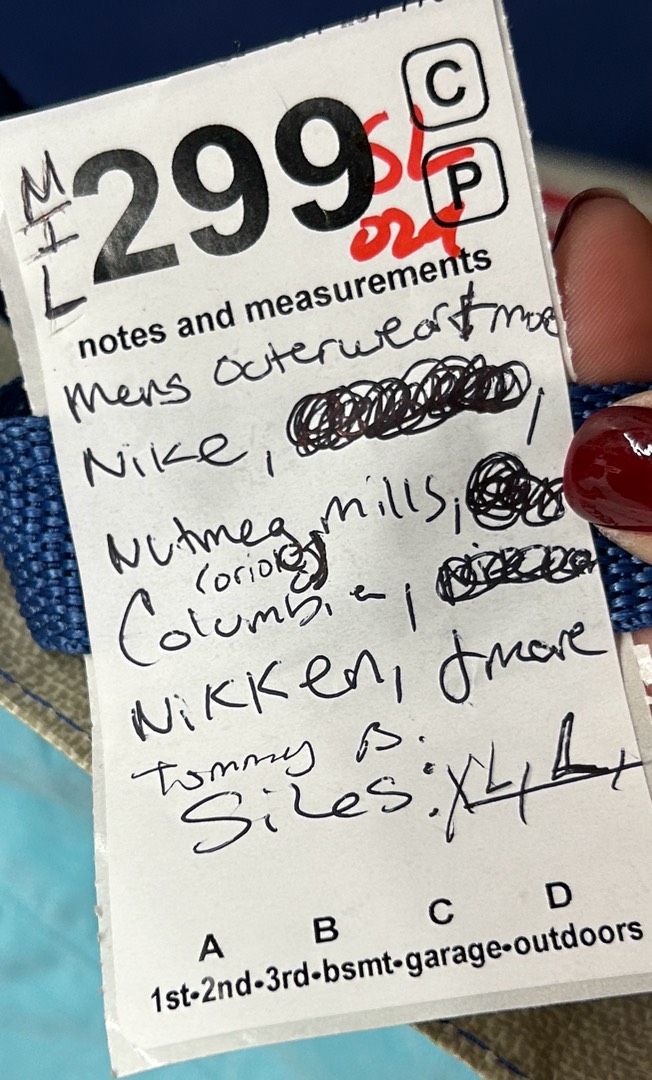 C
299 SL
P
024
MIL
notes and measurements
Mens Outerwear & more
Nike, ,
Nutmeg mills,
(oriole)
Columbia,
Nikken, & more
Tommy B.
Sizes: XL, L,
A B C D
1st•2nd•3rd•bsmt•garage•outdoors